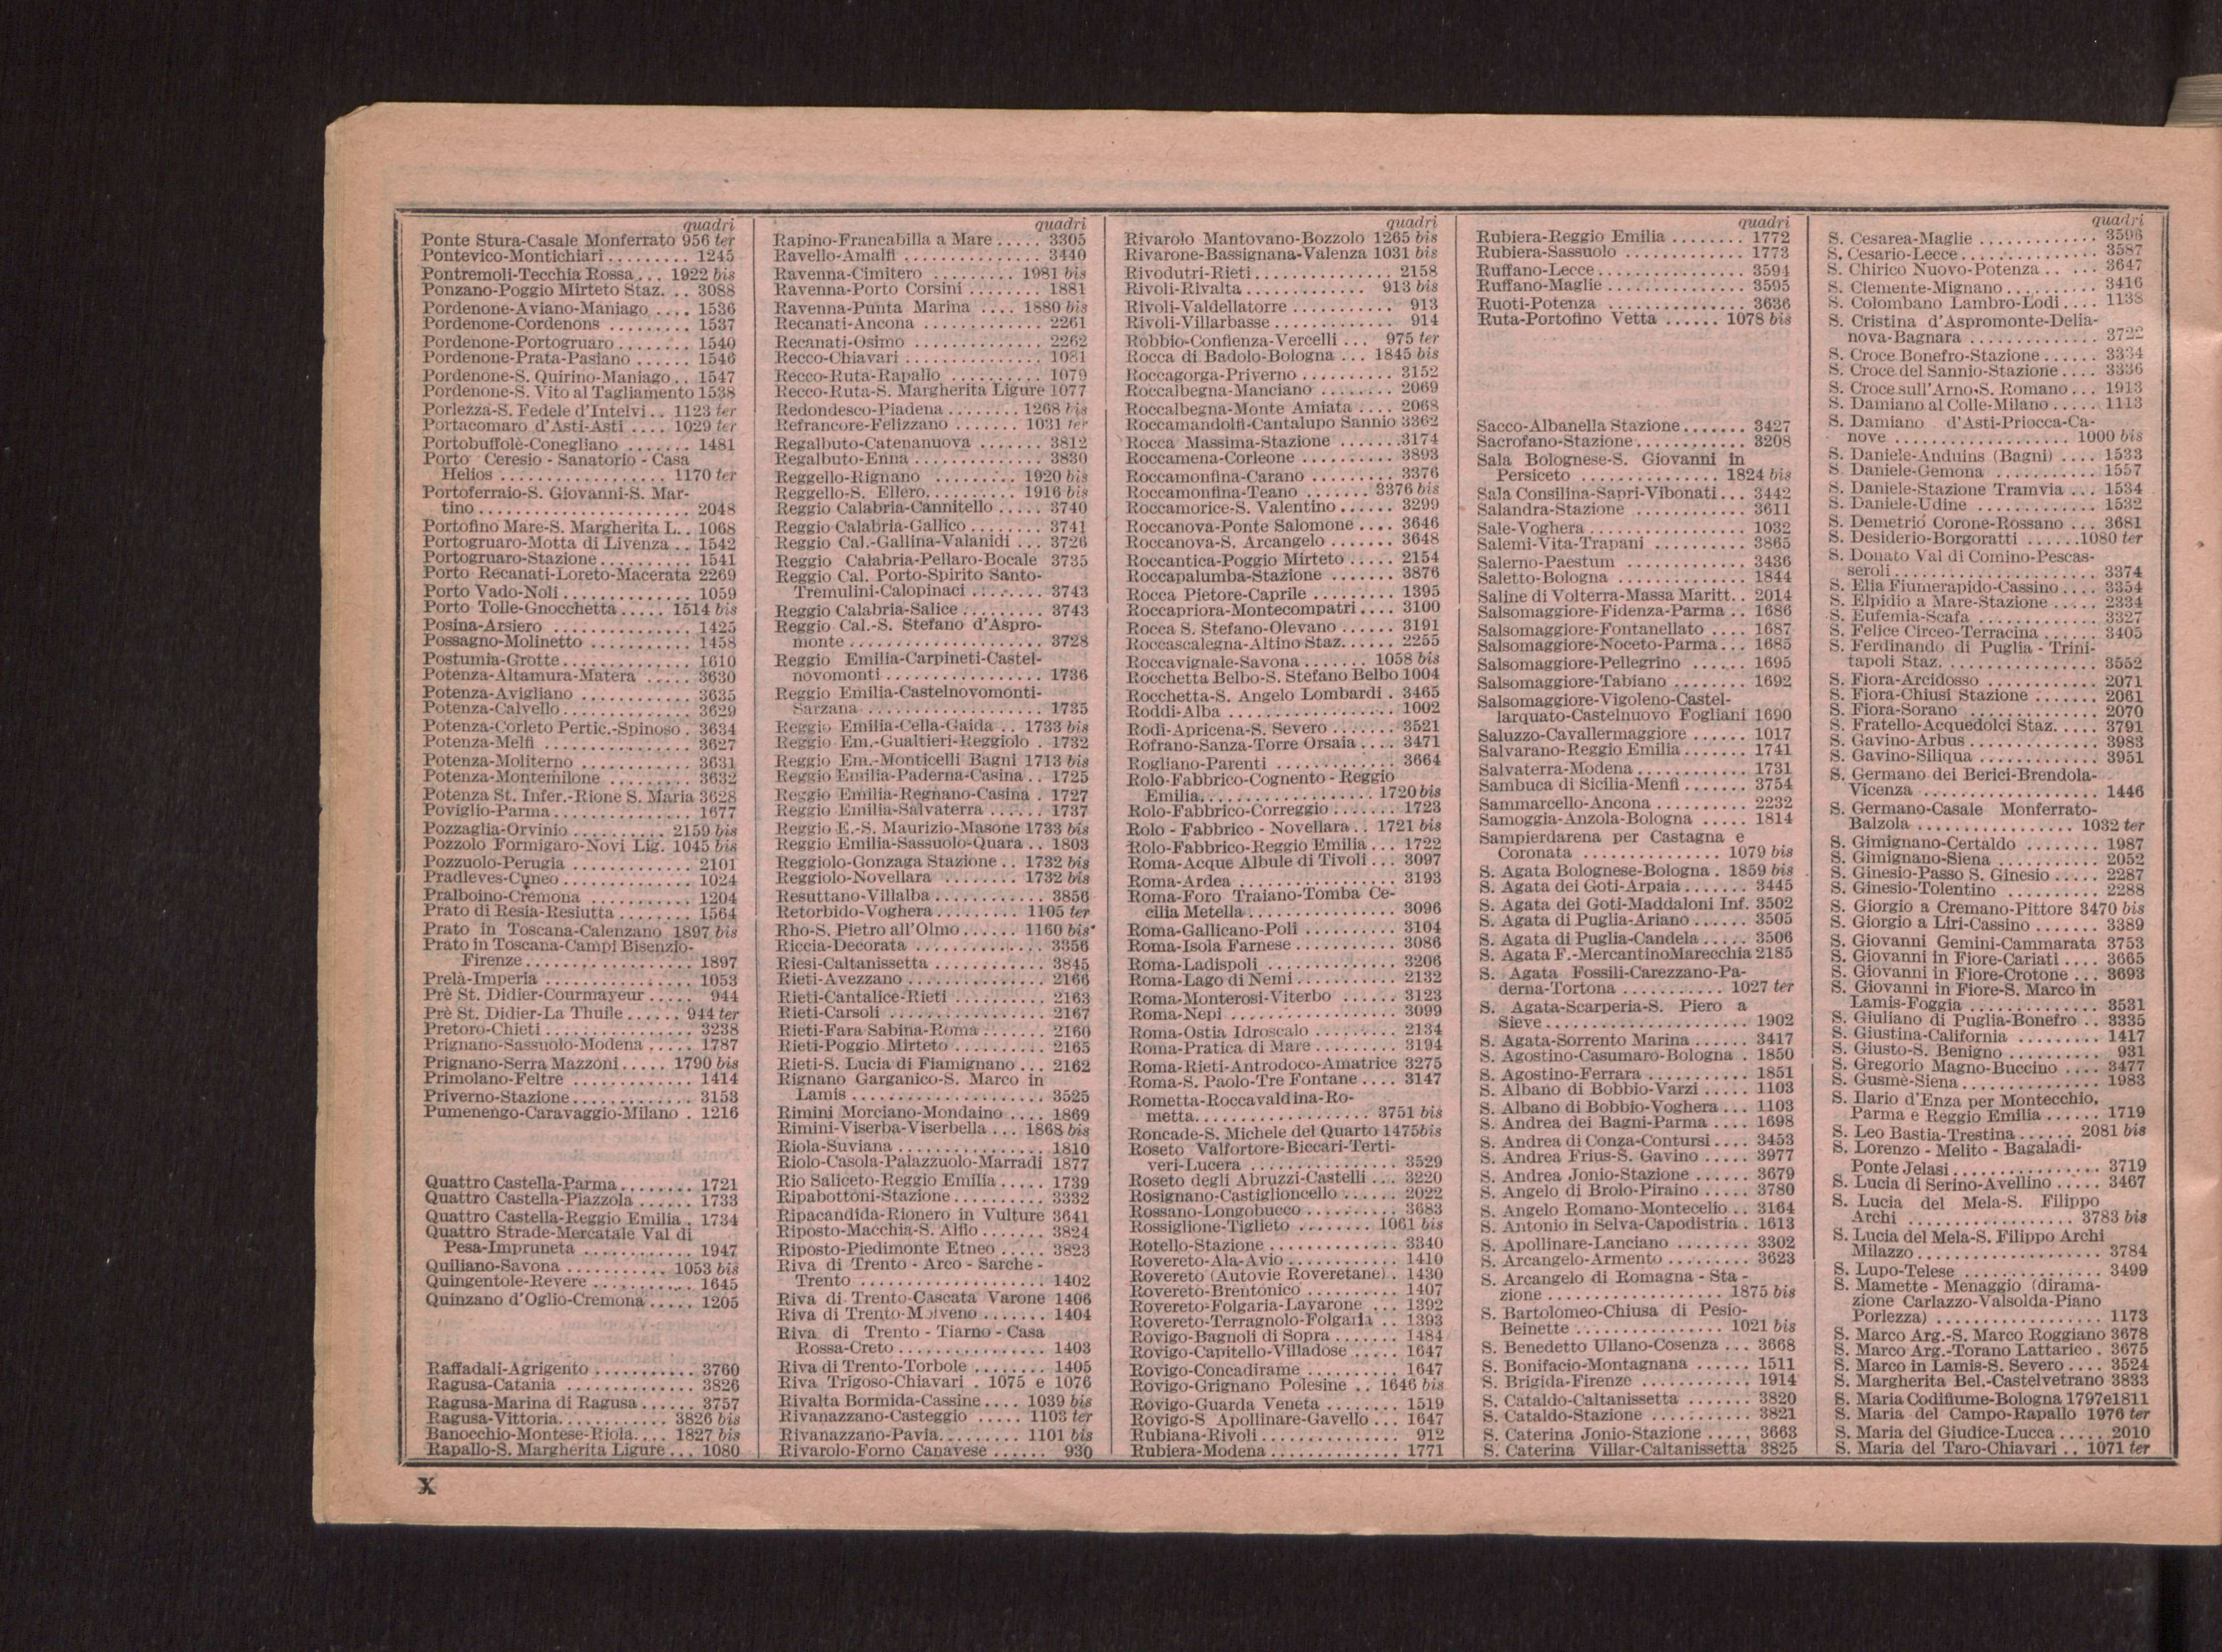 quadri
Ponte Stura-Casale Monferrato 956 ter
Pontevico-Montichiari ......... 1245
Pontremoli-Tecchia Rossa... 1922 bis
Ponzano-Poggio Mirteto Staz. .. 3088
Pordenone-Aviano-Maniago .... 1536
Pordenone-Cordenons ......... 1537
Pordenone-Portogruaro........ 1540
Pordenone-Prata-Pasiano ..... 1546
Pordenone-S. Quirino-Maniago.. 1547
Pordenone-S. Vito al Tagliamento 1538
Porlezza-S. Fedele d'Intelvi.. 1123 ter
Portacomaro d'Asti-Asti .... 1029 ter
Portobuffolè-Conegliano ....... 1481
Porto Ceresio - Sanatorio - Casa
Helios ................. 1170 ter
Portoferraio-S. Giovanni-S. Mar-
tino...................... 2048
Portofino Mare-S. Margherita L.. 1068
Portogruaro-Motta di Livenza .. 1542
Portogruaro-Stazione.......... 1541
Porto Recanati-Loreto-Macerata 2269
Porto Vado-Noli.............. 1059
Porto Tolle-Gnocchetta ..... 1514 bis
Posina-Arsiero ............... 1425
Possagno-Molinetto ........... 1458
Postumia-Grotte.............. 1610
Potenza-Altamura-Matera ..... 3630
Potenza-Avigliano ............ 3635
Potenza-Calvello.............. 3629
Potenza-Corleto Pertic.-Spinoso . 3634
Potenza-Melfi ................ 3627
Potenza-Moliterno ............ 3631
Potenza-Montemilone ......... 3632
Potenza St. Infer.-Rione S. Maria 3628
Poviglio-Parma............... 1677
Pozzaglia-Orvinio .......... 2159 bis
Pozzolo Formigaro-Novi Lig. 1045 bis
Pozzuolo-Perugia ............. 2101
Pradleves-Cuneo.............. 1024
Pralboino-Cremona ........... 1204
Prato di Resia-Resiutta ........ 1564
Prato in Toscana-Calenzano 1897 bis
Prato in Toscana-Campi Bisenzio-
Firenze................... 1897
Prelà-Imperia ................ 1053
Prè St. Didier-Courmayeur ..... 944
Prè St. Didier-La Thuile ...... 944 ter
Pretoro-Chieti................ 3238
Prignano-Sassuolo-Modena ..... 1787
Prignano-Serra Mazzoni..... 1790 bis
Primolano-Feltre ............. 1414
Priverno-Stazione............. 3153
Pumenengo-Caravaggio-Milano . 1216
Quattro Castella-Parma........ 1721
Quattro Castella-Piazzola ...... 1733
Quattro Castella-Reggio Emilia . 1734
Quattro Strade-Mercatale Val di
Pesa-Impruneta ............ 1947
Quiliano-Savona ........... 1053 bis
Quingentole-Revere ........... 1645
Quinzano d'Oglio-Cremona ..... 1205
Raffadali-Agrigento ........... 3760
Ragusa-Catania .............. 3826
Ragusa-Marina di Ragusa ...... 3757
Ragusa-Vittoria............ 3826 bis
Banocchio-Montese-Riola.... 1827 bis
Rapallo-S. Margherita Ligure ... 1080
quadri
Rapino-Francabilla a Mare ..... 3305
Ravello-Amalfi ............... 3440
Ravenna-Cimitero ......... 1981 bis
Ravenna-Porto Corsini ........ 1881
Ravenna-Punta Marina .... 1880 bis
Recanati-Ancona ............. 2261
Recanati-Osimo .............. 2262
Recco-Chiavari ............... 1081
Recco-Ruta-Rapallo .......... 1079
Recco-Ruta-S. Margherita Ligure 1077
Redondesco-Piadena ........ 1268 bis
Refrancore-Felizzano ....... 1031 ter
Regalbuto-Catenanuova ....... 3812
Regalbuto-Enna .............. 3830
Reggello-Rignano ......... 1920 bis
Reggello-S. Ellero.......... 1916 bis
Reggio Calabria-Cannitello ..... 3740
Reggio Calabria-Gallico........ 3741
Reggio Cal.-Gallina-Valanidi ... 3726
Reggio Calabria-Pellaro-Bocale 3735
Reggio Cal. Porto-Spirito Santo-
Tremulini-Calopinaci ........ 3743
Reggio Calabria-Salice ......... 3743
Reggio Cal.-S. Stefano d'Aspro-
monte .................... 3728
Reggio Emilia-Carpineti-Castel-
novomonti ................ 1736
Reggio Emilia-Castelnovomonti-
Sarzana .................. 1735
Reggio Emilia-Cella-Gaida .. 1733 bis
Reggio Em.-Gualtieri-Reggiolo . 1732
Reggio Em.-Monticelli Bagni 1713 bis
Reggio Emilia-Paderna-Casina .. 1725
Reggio Emilia-Regnano-Casina . 1727
Reggio Emilia-Salvaterra ...... 1737
Reggio E.-S. Maurizio-Masone 1733 bis
Reggio Emilia-Sassuolo-Quara .. 1803
Reggiolo-Gonzaga Stazione .. 1732 bis
Reggiolo-Novellara ........ 1732 bis
Resuttano-Villalba ............ 3856
Retorbido-Voghera ......... 1105 ter
Rho-S. Pietro all'Olmo ...... 1160 bis
Riccia-Decorata .............. 3356
Riesi-Caltanissetta ............ 3845
Rieti-Avezzano ............... 2166
Rieti-Cantalice-Rieti .......... 2163
Rieti-Carsoli ................. 2167
Rieti-Fara Sabina-Roma ....... 2160
Rieti-Poggio Mirteto .......... 2165
Rieti-S. Lucia di Fiamignano ... 2162
Rignano Garganico-S. Marco in
Lamis .................... 3525
Rimini Morciano-Mondaino .... 1869
Rimini-Viserba-Viserbella ... 1868 bis
Riola-Suviana ................ 1810
Riolo-Casola-Palazzuolo-Marradi 1877
Rio Saliceto-Reggio Emilia ..... 1739
Ripabottoni-Stazione .......... 3332
Ripacandida-Rionero in Vulture 3641
Riposto-Macchia-S. Alfio ....... 3824
Riposto-Piedimonte Etneo ..... 3823
Riva di Trento - Arco - Sarche -
Trento .................... 1402
Riva di Trento-Cascata Varone 1406
Riva di Trento-Molveno ....... 1404
Riva di Trento - Tiarno - Casa
Rossa-Creto ................ 1403
Riva di Trento-Torbole ........ 1405
Riva Trigoso-Chiavari . 1075 e 1076
Rivalta Bormida-Cassine.... 1039 bis
Rivanazzano-Casteggio ..... 1103 ter
Rivanazzano-Pavia......... 1101 bis
Rivarolo-Forno Canavese ...... 930
quadri
Rivarolo Mantovano-Bozzolo 1265 bis
Rivarone-Bassignana-Valenza 1031 bis
Rivodutri-Rieti ............... 2158
Rivoli-Rivalta ............. 913 bis
Rivoli-Valdellatorre ........... 913
Rivoli-Villarbasse ............. 914
Robbio-Confienza-Vercelli ... 975 ter
Rocca di Badolo-Bologna ... 1845 bis
Roccagorga-Priverno .......... 3152
Roccalbegna-Manciano ........ 2069
Roccalbegna-Monte Amiata .... 2068
Roccamandolfi-Cantalupo Sannio 3362
Rocca Massima-Stazione .......3174
Roccamena-Corleone .......... 3893
Roccamonfina-Carano ......... 3376
Roccamonfina-Teano ....... 3376 bis
Roccamorice-S. Valentino ...... 3299
Roccanova-Ponte Salomone .... 3646
Roccanova-S. Arcangelo ....... 3648
Roccantica-Poggio Mirteto ..... 2154
Roccapalumba-Stazione ....... 3876
Rocca Pietore-Caprile ......... 1395
Roccapriora-Montecompatri .... 3100
Rocca S. Stefano-Olevano ...... 3191
Roccascalegna-Altino Staz...... 2255
Roccavignale-Savona ....... 1058 bis
Rocchetta Belbo-S. Stefano Belbo 1004
Rocchetta-S. Angelo Lombardi . 3465
Roddi-Alba .................. 1002
Rodi-Apricena-S. Severo ....... 3521
Rofrano-Sanza-Torre Orsaia .... 3471
Rogliano-Parenti ............. 3664
Rolo-Fabbrico-Cognento - Reggio
Emilia................... 1720 bis
Rolo-Fabbrico-Correggio ....... 1723
Rolo - Fabbrico - Novellara .. 1721 bis
Rolo-Fabbrico-Reggio Emilia ... 1722
Roma-Acque Albule di Tivoli ... 3097
Roma-Ardea ................. 3193
Roma-Foro Traiano-Tomba Ce-
cilia Metella ................ 3096
Roma-Gallicano-Poli .......... 3104
Roma-Isola Farnese ........... 3086
Roma-Ladispoli .............. 3206
Roma-Lago di Nemi ........... 2132
Roma-Monterosi-Viterbo ...... 3123
Roma-Nepi .................. 3099
Roma-Ostia Idroscalo ......... 2134
Roma-Pratica di Mare ......... 3194
Roma-Rieti-Antrodoco-Amatrice 3275
Roma-S. Paolo-Tre Fontane .... 3147
Rometta-Roccavaldina-Ro-
metta................... 3751 bis
Roncade-S. Michele del Quarto 1475bis
Roseto Valfortore-Biccari-Terti-
veri-Lucera ................ 3529
Roseto degli Abruzzi-Castelli ... 3220
Rosignano-Castiglioncello ...... 2022
Rossano-Longobucco .......... 3683
Rossiglione-Tiglieto ........ 1061 bis
Rotello-Stazione .............. 3340
Rovereto-Ala-Avio ............ 1410
Rovereto (Autovie Roveretane) . 1430
Rovereto-Brentonico .......... 1407
Rovereto-Folgaria-Lavarone ... 1392
Rovereto-Terragnolo-Folgaria .. 1393
Rovigo-Bagnoli di Sopra ....... 1484
Rovigo-Capitello-Villadose ..... 1647
Rovigo-Concadirame .......... 1647
Rovigo-Grignano Polesine .. 1646 bis
Rovigo-Guarda Veneta ........ 1519
Rovigo-S Apollinare-Gavello ... 1647
Rubiana-Rivoli ............... 912
Rubiera-Modena .............. 1771
quadri
Rubiera-Reggio Emilia ........ 1772
Rubiera-Sassuolo ............. 1773
Ruffano-Lecce................ 3594
Ruffano-Maglie ............... 3595
Ruoti-Potenza ............... 3636
Ruta-Portofino Vetta ...... 1078 bis
Sacco-Albanella Stazione....... 3427
Sacrofano-Stazione............ 3208
Sala Bolognese-S. Giovanni in
Persiceto ............... 1824 bis
Sala Consilina-Sapri-Vibonati... 3442
Salandra-Stazione ............ 3611
Sale-Voghera ................ 1032
Salemi-Vita-Trapani .......... 3865
Salerno-Paestum ............. 3436
Saletto-Bologna .............. 1844
Saline di Volterra-Massa Maritt.. 2014
Salsomaggiore-Fidenza-Parma .. 1686
Salsomaggiore-Fontanellato .... 1687
Salsomaggiore-Noceto-Parma... 1685
Salsomaggiore-Pellegrino ...... 1695
Salsomaggiore-Tabiano ........ 1692
Salsomaggiore-Vigoleno-Castel-
larquato-Castelnuovo Fogliani 1690
Saluzzo-Cavallermaggiore ...... 1017
Salvarano-Reggio Emilia ....... 1741
Salvaterra-Modena ............ 1731
Sambuca di Sicilia-Menfi ....... 3754
Sammarcello-Ancona .......... 2232
Samoggia-Anzola-Bologna ..... 1814
Sampierdarena per Castagna e
Coronata ............... 1079 bis
S. Agata Bolognese-Bologna . 1859 bis
S. Agata dei Goti-Arpaia ....... 3445
S. Agata dei Goti-Maddaloni Inf. 3502
S. Agata di Puglia-Ariano ...... 3505
S. Agata di Puglia-Candela ..... 3506
S. Agata F.-MercantinoMarecchia 2185
S. Agata Fossili-Carezzano-Pa-
derna-Tortona ........... 1027 ter
S. Agata-Scarperia-S. Piero a
Sieve...................... 1902
S. Agata-Sorrento Marina ...... 3417
S. Agostino-Casumaro-Bologna . 1850
S. Agostino-Ferrara ........... 1851
S. Albano di Bobbio-Varzi ..... 1103
S. Albano di Bobbio-Voghera ... 1103
S. Andrea dei Bagni-Parma .... 1698
S. Andrea di Conza-Contursi .... 3453
S. Andrea Frius-S. Gavino ..... 3977
S. Andrea Jonio-Stazione ...... 3679
S. Angelo di Brolo-Piraino ..... 3780
S. Angelo Romano-Montecelio .. 3164
S. Antonio in Selva-Capodistria . 1613
S. Apollinare-Lanciano ........ 3302
S. Arcangelo-Armento ......... 3623
S. Arcangelo di Romagna - Sta -
zione .................. 1875 bis
S. Bartolomeo-Chiusa di Pesio-
Beinette ................ 1021 bis
S. Benedetto Ullano-Cosenza ... 3668
S. Bonifacio-Montagnana ...... 1511
S. Brigida-Firenze ............ 1914
S. Cataldo-Caltanissetta ....... 3820
S. Cataldo-Stazione ........... 3821
S. Caterina Jonio-Stazione ..... 3663
S. Caterina Villar-Caltanissetta 3825
quadri
S. Cesarea-Maglie ............. 3596
S. Cesario-Lecce.............. 3587
S. Chirico Nuovo-Potenza.. ... 3647
S. Clemente-Mignano .......... 3416
S. Colombano Lambro-Lodi.... 1138
S. Cristina d'Aspromonte-Delia-
nova-Bagnara .............. 3722
S. Croce Bonefro-Stazione ...... 3334
S. Croce del Sannio-Stazione .... 3336
S. Croce sull'Arno-S. Romano... 1913
S. Damiano al Colle-Milano ..... 1113
S. Damiano d'Asti-Priocca-Ca-
nove .................. 1000 bis
S. Daniele-Anduins (Bagni) .... 1533
S. Daniele-Gemona ........... 1557
S. Daniele-Stazione Tramvia ... 1534
S. Daniele-Udine ............. 1532
S. Demetrio Corone-Rossano ... 3681
S. Desiderio-Borgoratti ......1080 ter
S. Donato Val di Comino-Pescas-
seroli...................... 3374
S. Elia Fiumerapido-Cassino .... 3354
S. Elpidio a Mare-Stazione ..... 2334
S. Eufemia-Scafa ............. 3327
S. Felice Circeo-Terracina ...... 3405
S. Ferdinando di Puglia - Trini-
tapoli Staz. ................ 3552
S. Fiora-Arcidosso ............ 2071
S. Fiora-Chiusi Stazione ....... 2061
S. Fiora-Sorano .............. 2070
S. Fratello-Acquedolci Staz. .... 3791
S. Gavino-Arbus .............. 3983
S. Gavino-Siliqua ............. 3951
S. Germano dei Berici-Brendola-
Vicenza ................... 1446
S. Germano-Casale Monferrato-
Balzola ................. 1032 ter
S. Gimignano-Certaldo ........ 1987
S. Gimignano-Siena ........... 2052
S. Ginesio-Passo S. Ginesio ..... 2287
S. Ginesio-Tolentino .......... 2288
S. Giorgio a Cremano-Pittore 3470 bis
S. Giorgio a Liri-Cassino ....... 3389
S. Giovanni Gemini-Cammarata 3753
S. Giovanni in Fiore-Cariati .... 3665
S. Giovanni in Fiore-Crotone ... 3693
S. Giovanni in Fiore-S. Marco in
Lamis-Foggia .............. 3531
S. Giuliano di Puglia-Bonefro .. 3335
S. Giustina-California ......... 1417
S. Giusto-S. Benigno .......... 931
S. Gregorio Magno-Buccino .... 3477
S. Gusmè-Siena............... 1983
S. Ilario d'Enza per Montecchio,
Parma e Reggio Emilia ...... 1719
S. Leo Bastia-Trestina...... 2081 bis
S. Lorenzo - Melito - Bagaladi-
Ponte Jelasi................ 3719
S. Lucia di Serino-Avellino ..... 3467
S. Lucia del Mela-S. Filippo
Archi .................. 3783 bis
S. Lucia del Mela-S. Filippo Archi
Milazzo.................... 3784
S. Lupo-Telese ............... 3499
S. Mamette - Menaggio (dirama-
zione Carlazzo-Valsolda-Piano
Porlezza) .................. 1173
S. Marco Arg.-S. Marco Roggiano 3678
S. Marco Arg.-Torano Lattarico . 3675
S. Marco in Lamis-S. Severo .... 3524
S. Margherita Bel.-Castelvetrano 3833
S. Maria Codifiume-Bologna 1797e1811
S. Maria del Campo-Rapallo 1976 ter
S. Maria del Giudice-Lucca ..... 2010
S. Maria del Taro-Chiavari .. 1071 ter
X